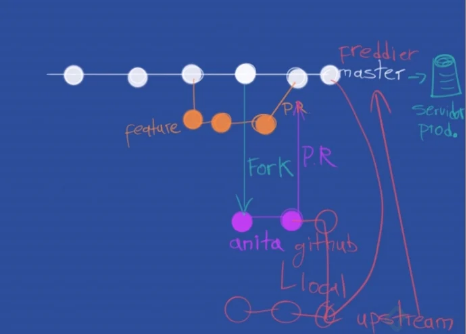 Freddier
master
servidor
prod.
feature
P.R
Fork
P.R
anita
github
local
upstream